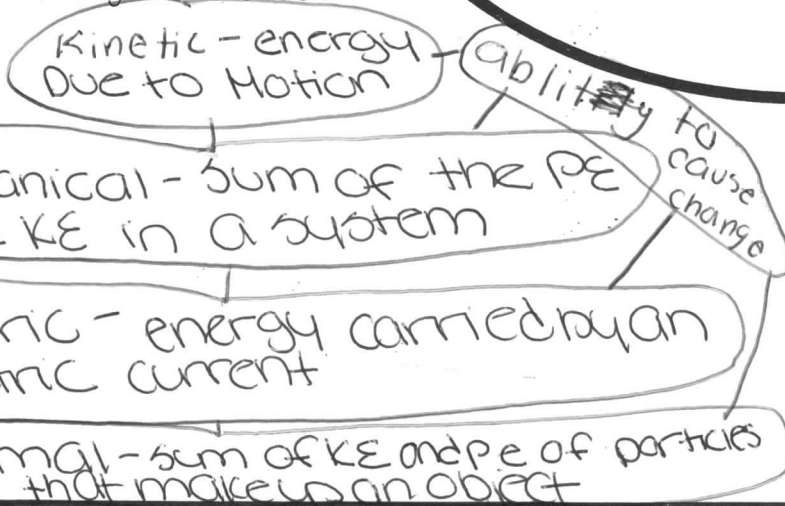 Kinetic - energy
Due to Motion
ability to
cause
change
anical - Sum of the PE
KE in a system
ric - energy carried by an
ric current
mal - sum of KE and pe of particles
that make up an object